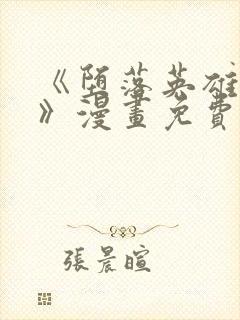 《堕落英雄
》漫畫免費
張晨暄